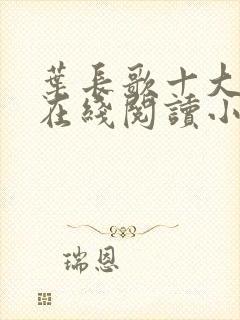 葉長歌十大
在綫閱讀小
瑞恩